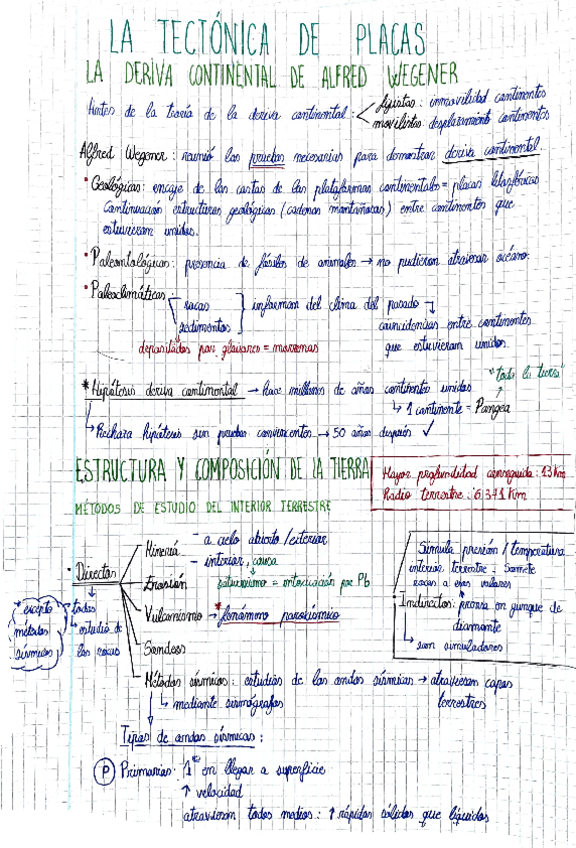 LA TECTÓNICA DE PLACAS
LA DERIVA CONTINENTAL DE ALFRED WEGENER
Antes de la teoría de la deriva continental: fijistas: inmovilidad continentes
movilistas: desplazamiento continentes
Alfred Wegener: reunió las pruebas necesarias para demostrar deriva continental
• Geológicas: encaje de las costas de las plataformas continentales = placas litosféricas
Continuación estructuras geológicas (cadenas montañosas) entre continentes que
estuvieron unidos.
• Paleontológicas: presencia de fósiles de animales → no pudieron atravesar océano.
• Paleoclimáticas:
rocas
sedimentos
informan del clima del pasado
coincidencias entre continentes
que estuvieron unidos.
depositados por glaciares = morrenas
* Hipótesis deriva continental → hace millones de años continentes unidos
"toda la tierra"
↳ 1 continente = Pangea
Rechaza hipótesis sin pruebas convincentes → 50 años después ✓
ESTRUCTURA Y COMPOSICIÓN DE LA TIERRA
Mayor profundidad conseguida: 13 km
Radio terrestre: 6.371 Km
MÉTODOS DE ESTUDIO DEL INTERIOR TERRESTRE
• Directos
Minería - a cielo abierto / exterior
- interior, causa
saturnismo = intoxicación por Pb
Erosión
Vulcanismo → * fenómeno paroxísmico
Sondeos
Métodos sísmicos: estudios de las ondas sísmicas → atraviesan capas
terrestres
↳ mediante sismógrafos
* excepto
métodos
sísmicos
todos
↳ estudio de
las rocas
Simula presión / temperatura
interior terrestre - Somete
rocas a esos valores
• Indirectos: prensa en yunque de
diamante
↳ son simuladores
Tipos de ondas sísmicas:
P Primarias: 1ª en llegar a superficie
↑ velocidad
atraviesan todos medios: ↑ rápidos sólidos que líquidos